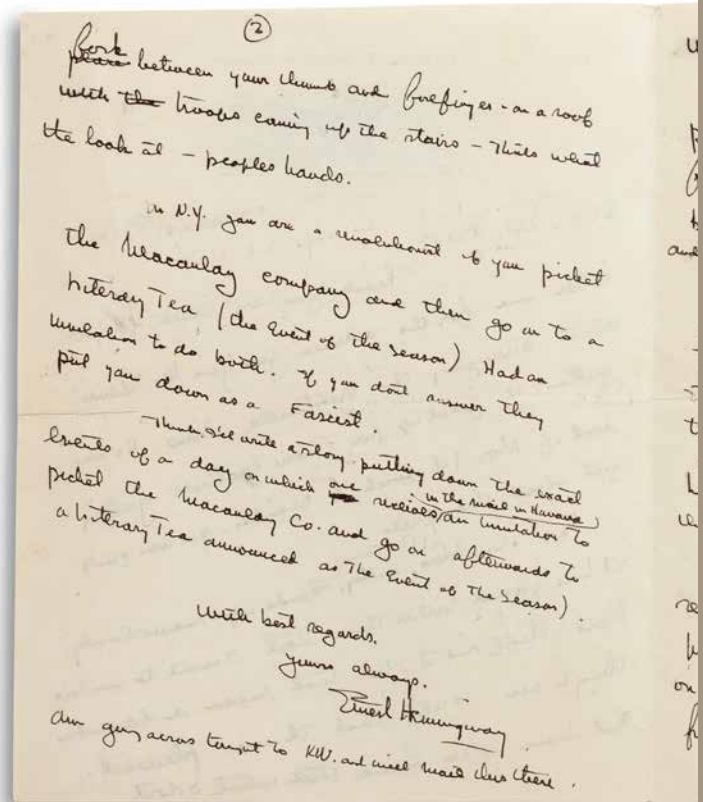 ②
fork
place between your thumb and forefinger - on a roof
with the troops coming up the stairs - Thats what
the look at - peoples hands.
In N.Y. you are a revolutionist if you picket
the Macaulay company and then go on to a
Literary Tea (the Event of the Season) Had an
invitation to do both. If you dont answer they
put you down as a Fascist.
Think I'll write a story putting down the exact
events of a day on which one receives in the mail in Havana an invitation to
picket the Macaulay Co. and go on afterwards to
a Literary Tea announced as The Event of The Season).
With best regards.
Yours always.
Ernest Hemingway
Am going across tonight to KW. and will mail this there.
and
on